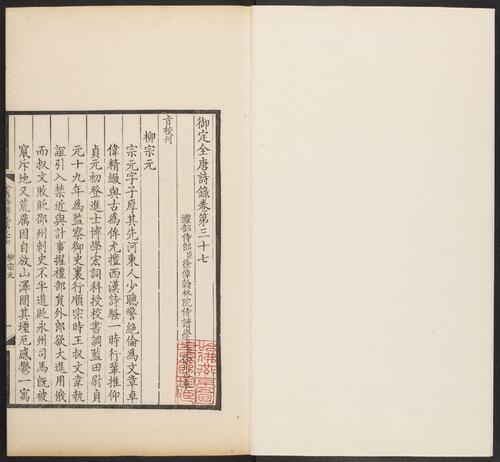 御定全唐詩錄卷第三十七
禮部侍郎臣徐倬翰林院侍讀學
旨校刊
柳宗元
宗元字子厚其先河東人少聰警絕倫爲文章卓
偉精緻與古爲侔尤擅西漢詩騷一時行輩推仰
貞元初登進士博學宏詞科授校書調藍田尉貞
元十九年爲監察御史裏行順宗時王叔文韋執
誼引入禁近與計事擢禮部員外郎欲大進用俄
而叔文敗貶邵州刺史不半道貶永州司馬旣被
竄斥地又荒癘因自放山澤閒其堙厄感鬱一寓
柳宗元
一